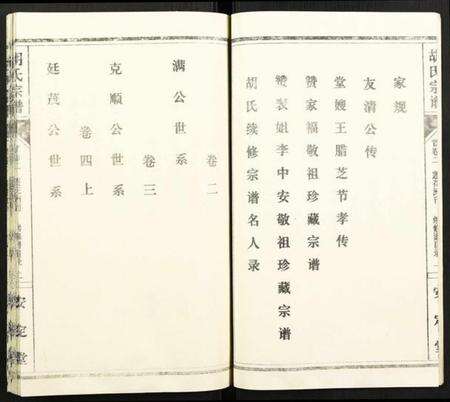 胡氏宗谱
家规
友清公传
堂嫂王腊芝节孝传
赞家福敬祖珍藏宗谱
赞表姐李中安敬祖珍藏宗谱
胡氏续修宗谱名人录
卷二
满公世系
卷三
克顺公世系
卷四上
廷茂公世系
胡氏宗谱
安定堂